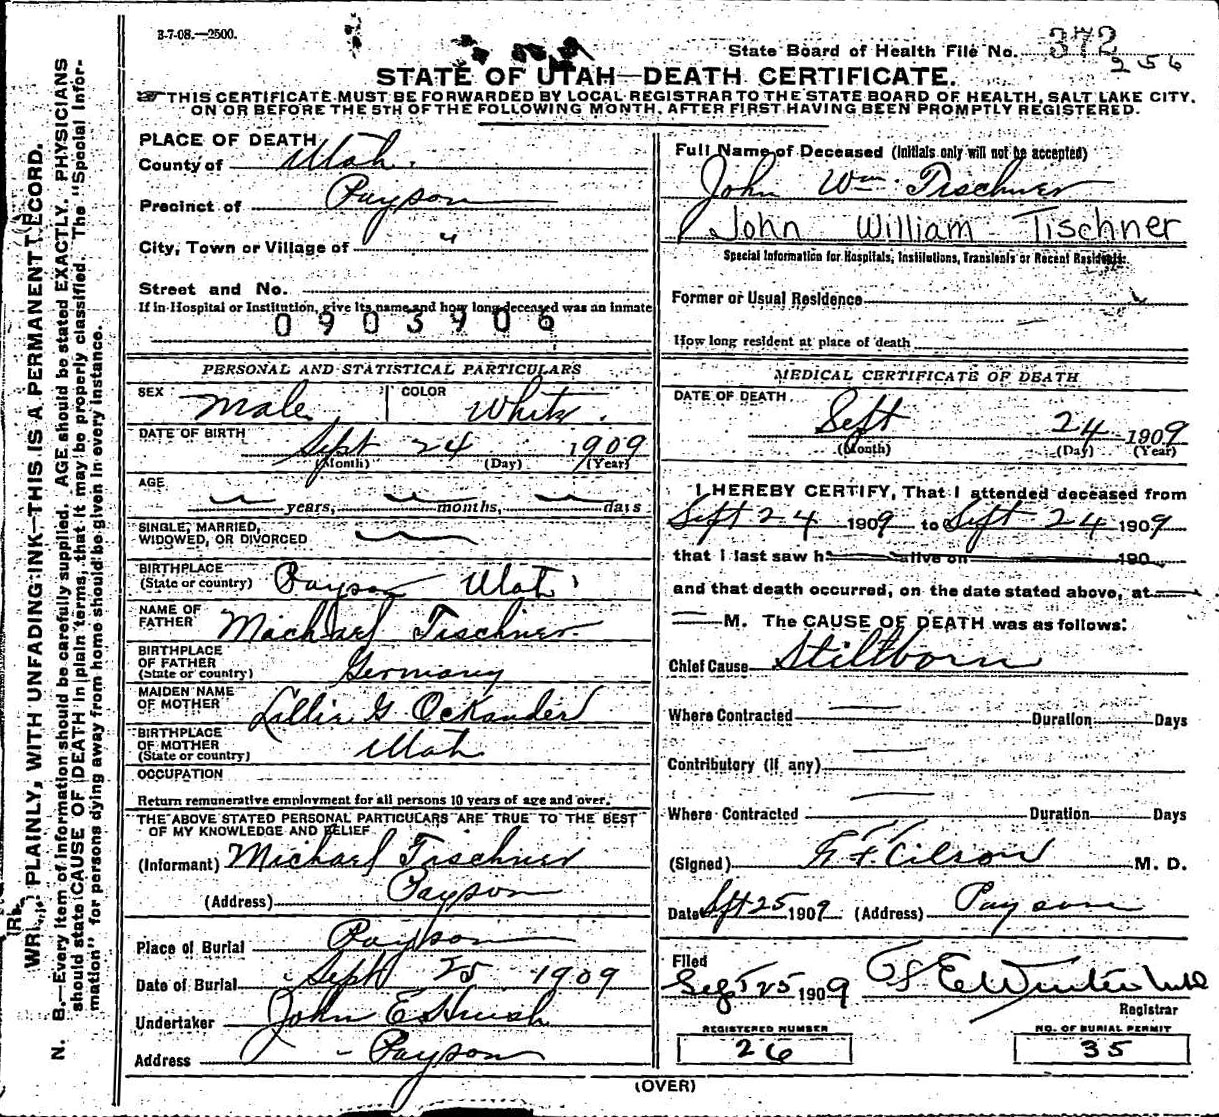 3-7-08.—2500.
State Board of Health File No. 372
256
STATE OF UTAH—DEATH CERTIFICATE.
THIS CERTIFICATE MUST BE FORWARDED BY LOCAL REGISTRAR TO THE STATE BOARD OF HEALTH, SALT LAKE CITY,
ON OR BEFORE THE 5TH OF THE FOLLOWING MONTH, AFTER FIRST HAVING BEEN PROMPTLY REGISTERED.
WRITE PLAINLY, WITH UNFADING INK—THIS IS A PERMANENT RECORD.
N. B.—Every item of information should be carefully supplied. AGE should be stated EXACTLY. PHYSICIANS
should state CAUSE OF DEATH in plain terms, that it may be properly classified. The "Special Infor-
mation" for persons dying away from home should be given in every instance.
PLACE OF DEATH
County of Utah.
Precinct of Payson
City, Town or Village of "
Street and No.
If in Hospital or Institution, give its name and how long deceased was an inmate
0903906
PERSONAL AND STATISTICAL PARTICULARS
SEX Male COLOR White.
DATE OF BIRTH Sept 24 1909
(Month) (Day) (Year)
AGE
years, months, days
SINGLE, MARRIED,
WIDOWED, OR DIVORCED
BIRTHPLACE
(State or country) Payson Utah
NAME OF
FATHER Michael Tischner.
BIRTHPLACE
OF FATHER
(State or country) Germany
MAIDEN NAME
OF MOTHER Lillie G. Ockander
BIRTHPLACE
OF MOTHER
(State or country) Utah
OCCUPATION
Return remunerative employment for all persons 10 years of age and over.
THE ABOVE STATED PERSONAL PARTICULARS ARE TRUE TO THE BEST
OF MY KNOWLEDGE AND BELIEF
(Informant) Michael Tischner
(Address) Payson
Place of Burial Payson
Date of Burial Sept 25 1909
Undertaker John E
Address - Payson
Full Name of Deceased (Initials only will not be accepted)
John Wm. Tischner
John William Tischner
Special Information for Hospitals, Institutions, Transients or Recent Residents.
Former or Usual Residence
How long resident at place of death
MEDICAL CERTIFICATE OF DEATH
DATE OF DEATH
Sept 24 1909
(Month) (Day) (Year)
I HEREBY CERTIFY, That I attended deceased from
Sept 24 1909 to Sept 24 1909
that I last saw h alive on 190
and that death occurred, on the date stated above, at
M. The CAUSE OF DEATH was as follows:
Chief Cause Stillborn
Where Contracted Duration Days
Contributory (if any)
Where Contracted Duration Days
(Signed) M. D.
Date Spt 25 1909 (Address) Payson
Filed
Sept 25 1909
Registrar
REGISTERED NUMBER
26
NO. OF BURIAL PERMIT
35
(OVER)